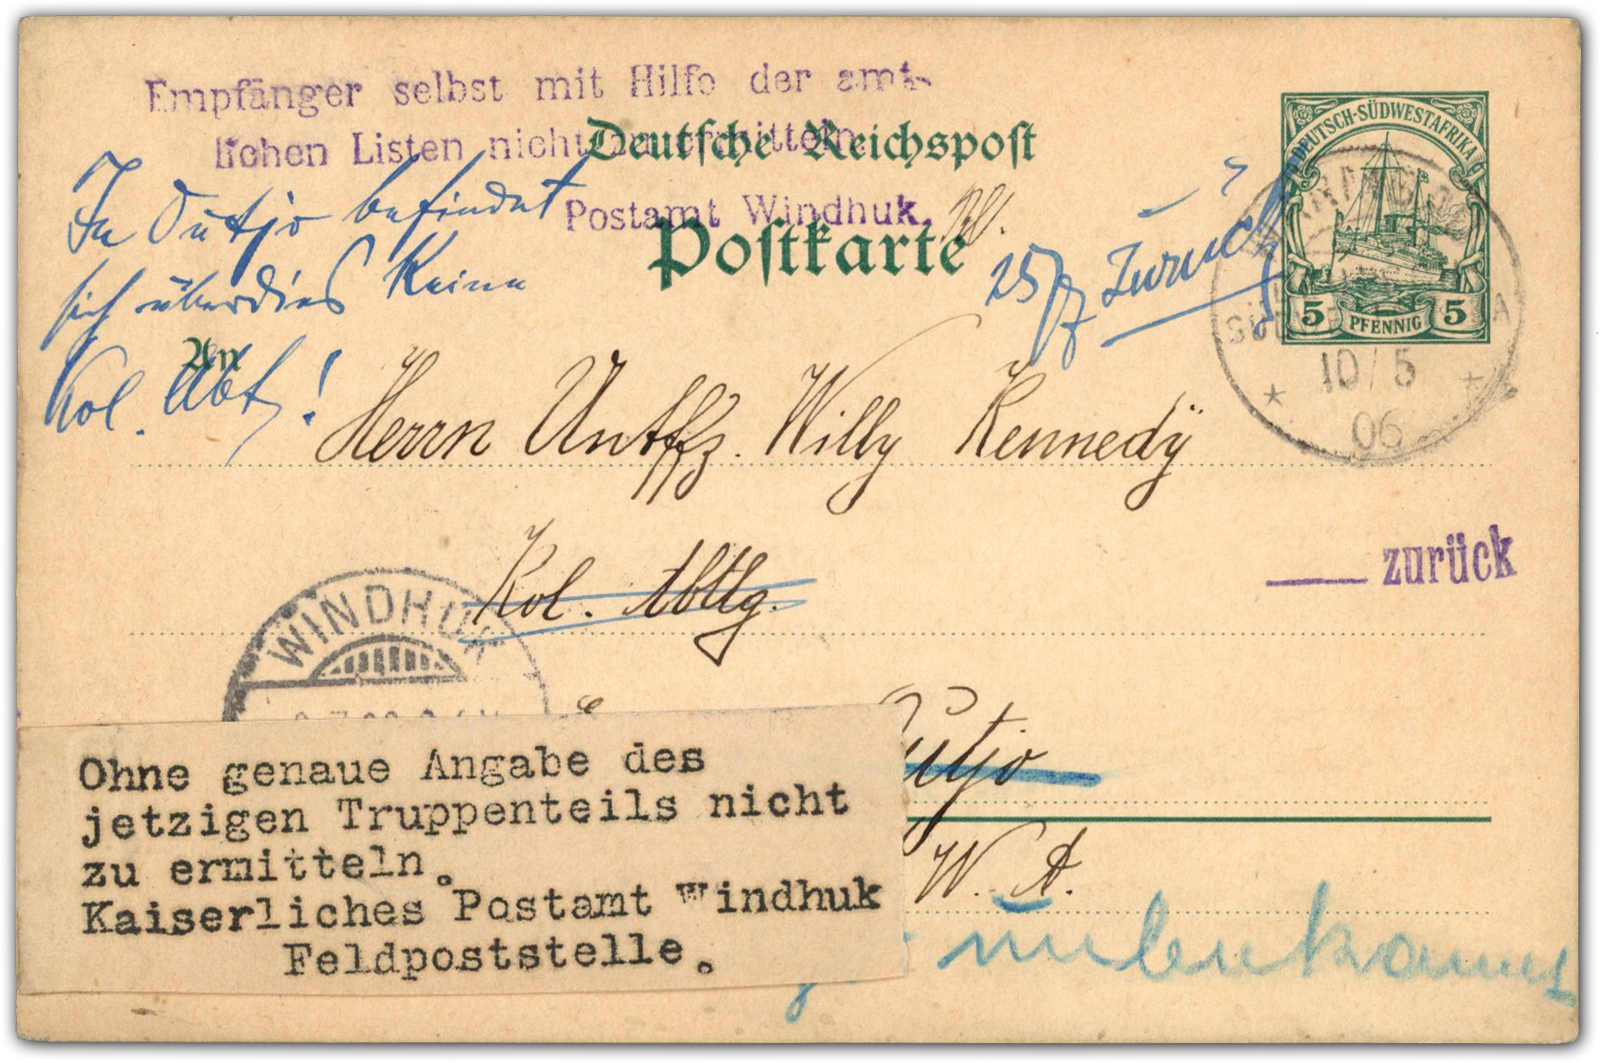 Empfänger selbst mit Hilfe der amt-
lichen Listen nicht zu ermitteln.
Postamt Windhuk.
Deutsche Reichspost
Postkarte
DEUTSCH-SÜDWESTAFRIKA
5 PFENNIG 5
10/5
06
In Outjo befindet
sich überdies keine
Kol. Abt!
25/7 Zurück
An
Herrn Untffz. Willy Kennedÿ
Kol. Abtlg.
zurück
WINDHUK
Outjo
W. A.
unbekannt
Ohne genaue Angabe des
jetzigen Truppenteils nicht
zu ermitteln.
Kaiserliches Postamt Windhuk
Feldpoststelle.